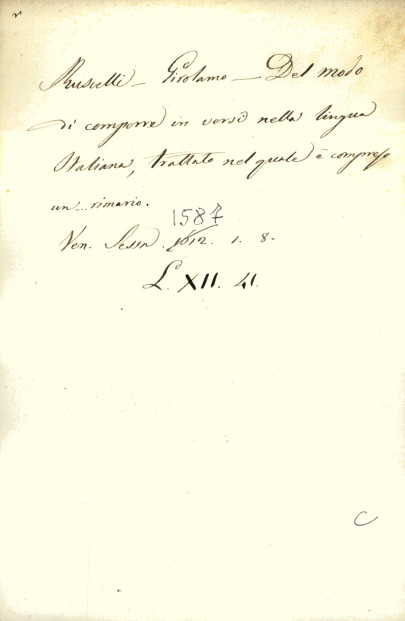 Ruscelli - Girolamo - Del modo
di comporre in versi nella lingua
Italiana, trattato nel quale è compreso
un rimario.
1587
Ven. Sessa. 1612. 1. 8.
L. XII. 41.
C